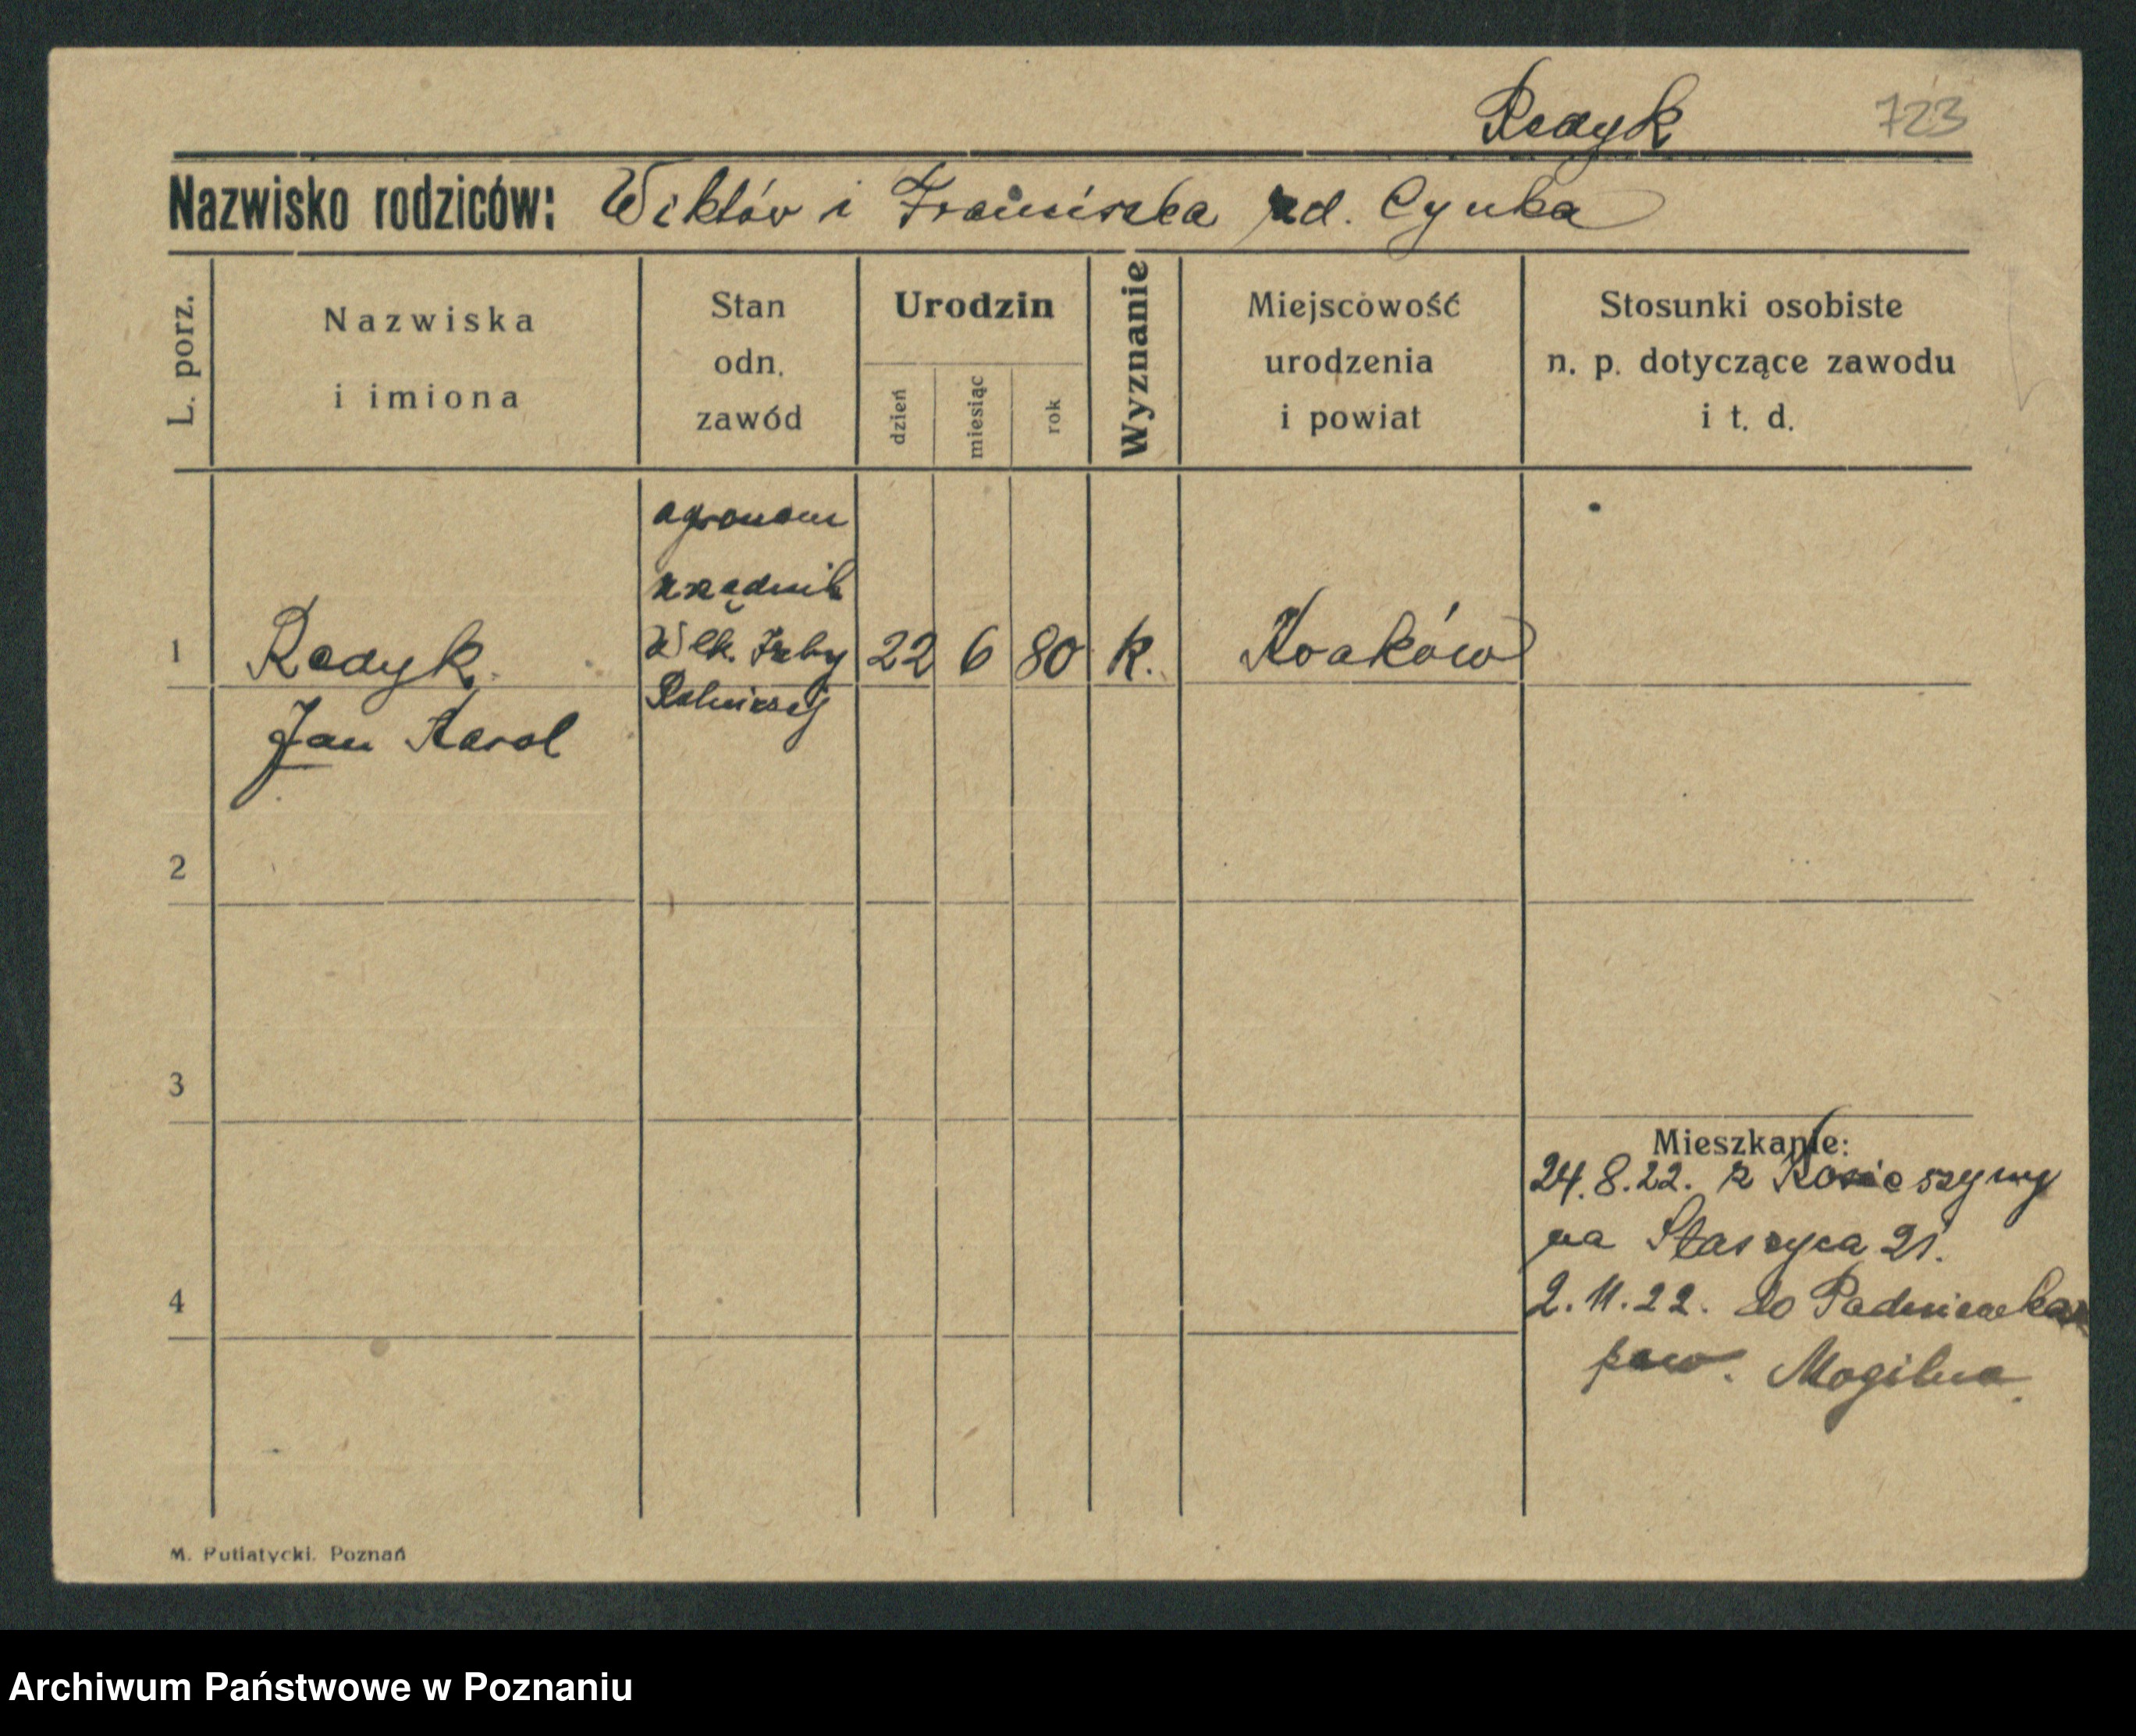 Redyk 723
Nazwisko rodziców: Wiktór i Franciszka zd. Cynka
L. porz.
Nazwiska
i imiona
Stan
odn.
zawód
Urodzin
dzień
miesiąc
rok
Wyznanie
Miejscowość
urodzenia
i powiat
Stosunki osobiste
n. p. dotyczące zawodu
i t. d.
agronom
urzędnik
1 Redyk Wlk. Izby 22 6 80 k. Kraków
Rolniczej
Jan Karol
2
3
Mieszkanie:
24.8.22. z
na Staszyca 21.
4 2.11.22. do
pow. Mogilno
M. Putiatycki. Poznań
Archiwum Państwowe w Poznaniu